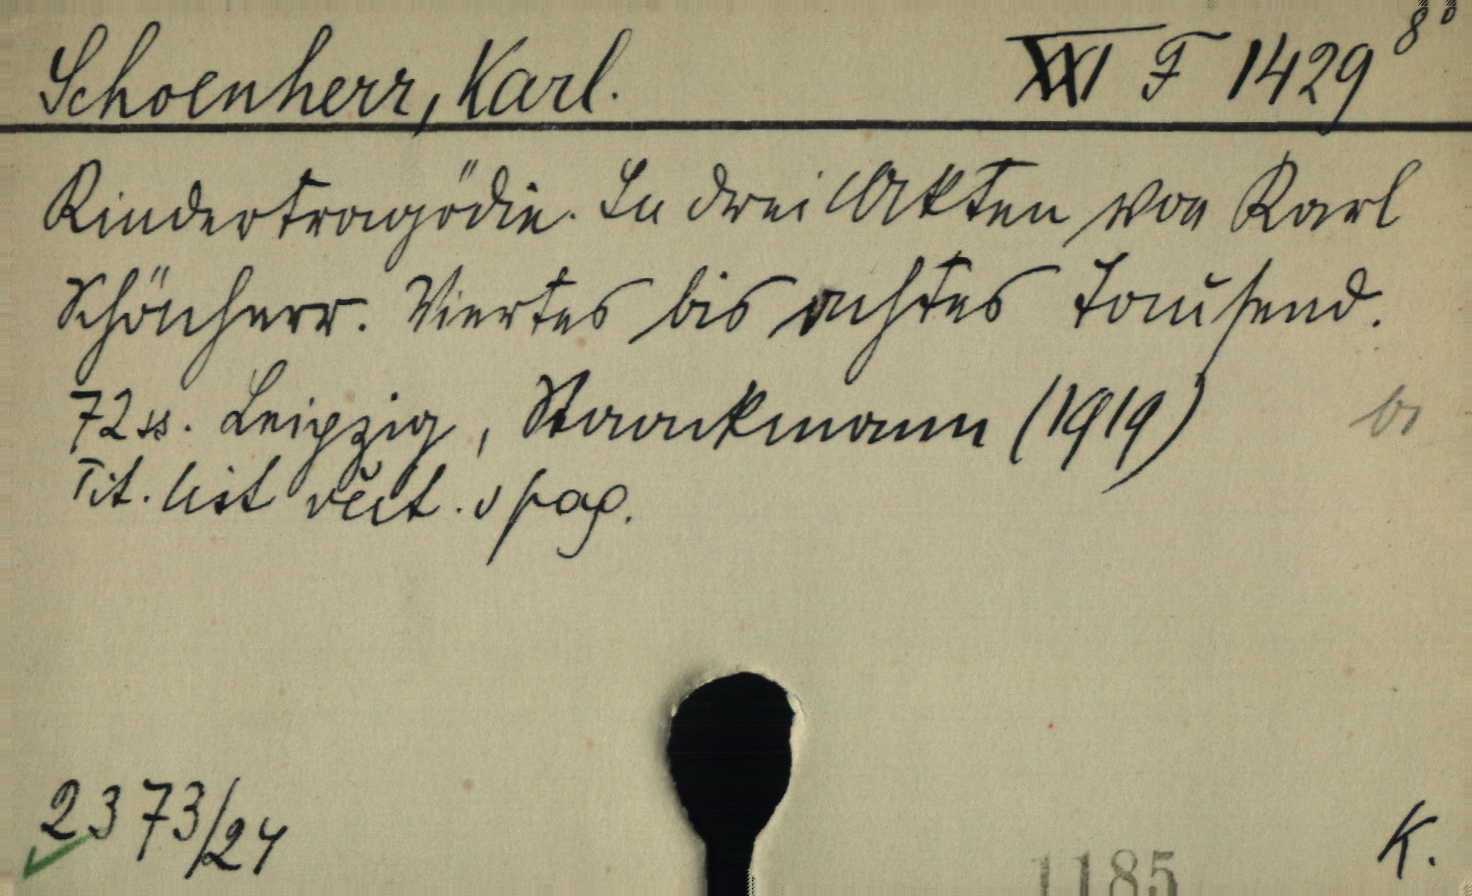 Schoenherr, Karl. XXI F 1429 8°
Kindertragödie. In drei Akten von Karl
Schönherr. Viertes bis achtes Tausend.
72 ss. Leipzig, Staackmann (1919)
Tit. list včít. v pag.
2373/24
K.
1185